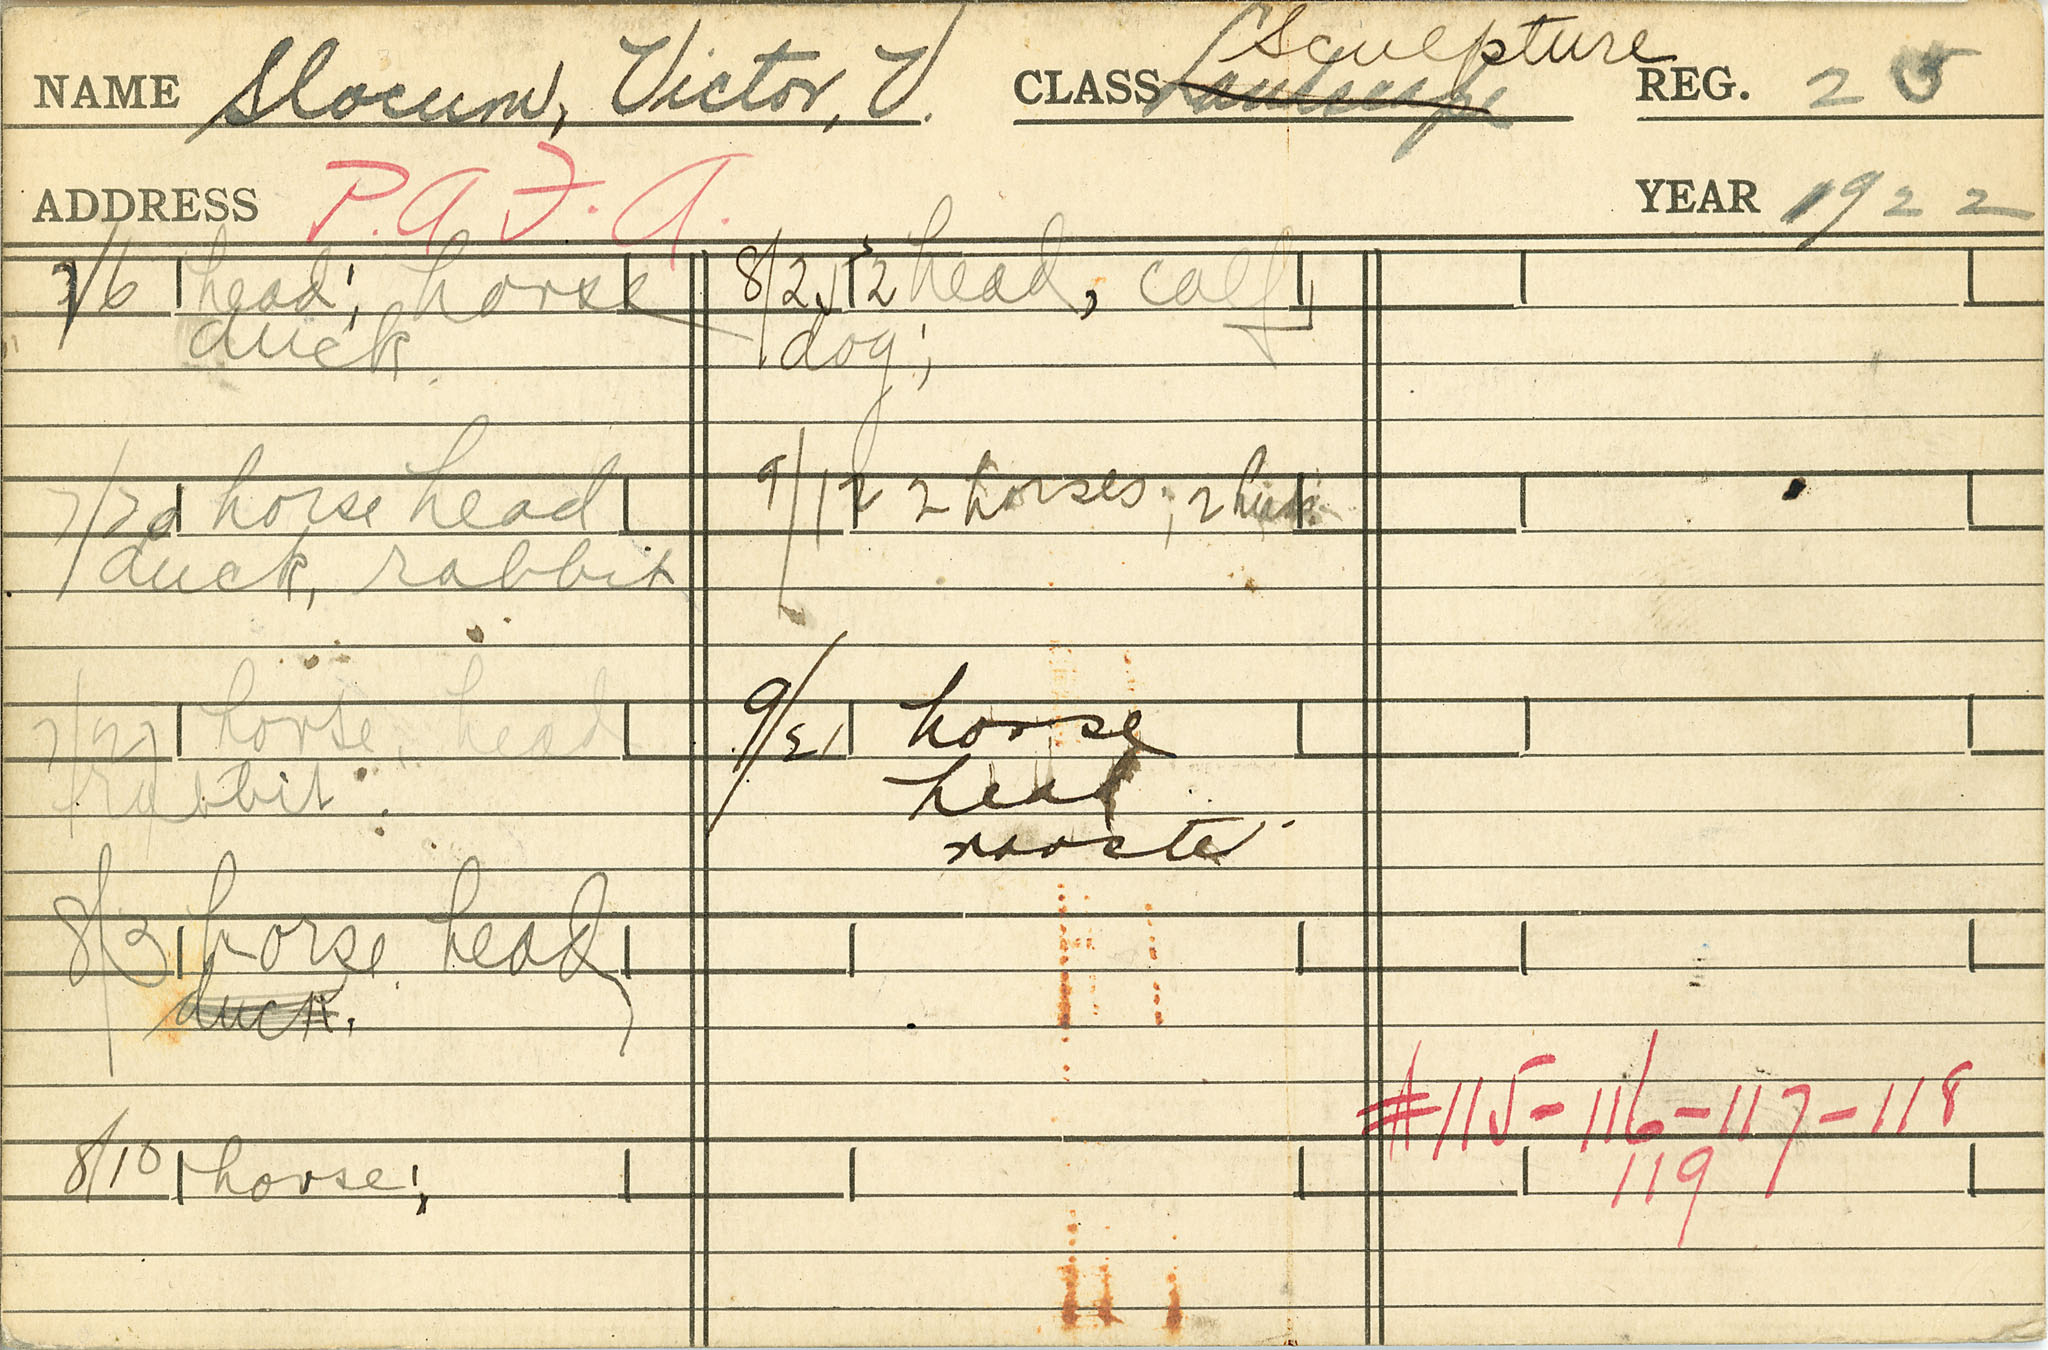 NAME Slocum, Victor, V. CLASS Landscape Sculpture REG. 25
ADDRESS P.A.F.A. YEAR 1922
7/6 head; horse
duck
7/20 horse head
duck, rabbit
7/27 horse, head
rabbit
8/3 horse head
duck,
8/10 horse;
8/25 2 head, calf
dog;
9/12 2 horses; 2
9/21 horse
head
rooster
#115-116-117-118
119